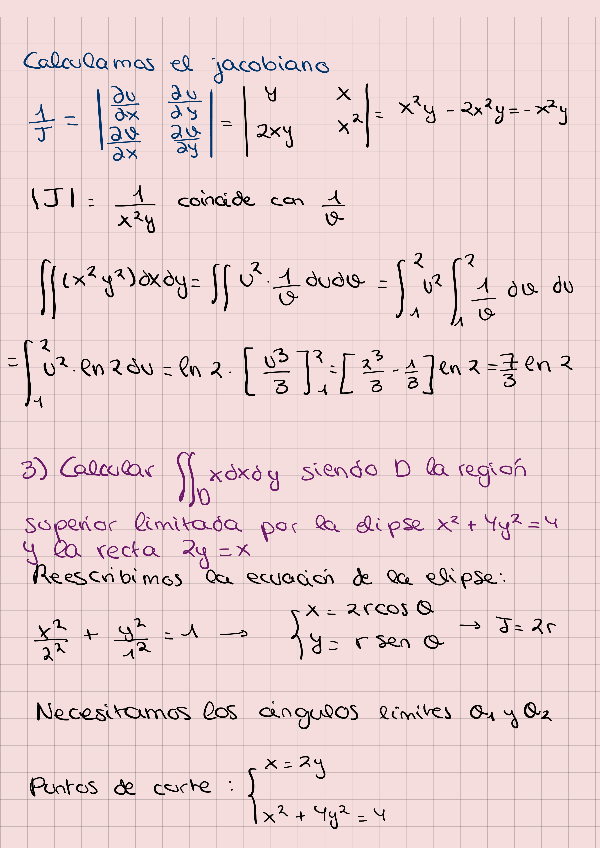 Calculamos el jacobiano
1/J = | ∂u/∂x ∂u/∂y ; ∂v/∂x ∂v/∂y | = | y x ; 2xy x² | = x²y - 2x²y = -x²y
|J| = 1/x²y coincide con 1/v
∬(x²y²)dxdy = ∬ u² · 1/v dudv = ∫₁² u² ∫₁² 1/v dv du
= ∫₁² u² · ln 2 du = ln 2 · [u³/3]₁² = [2³/3 - 1/3] ln 2 = 7/3 ln 2
3) Calcular ∬_D xdxdy siendo D la región
superior limitada por la elipse x² + 4y² = 4
y la recta 2y = x
Reescribimos la ecuación de la elipse:
x²/2² + y²/1² = 1 → { x = 2r cos θ ; y = r sen θ → J = 2r
Necesitamos los ángulos límites θ₁ y θ₂
Puntos de corte : { x = 2y ; x² + 4y² = 4